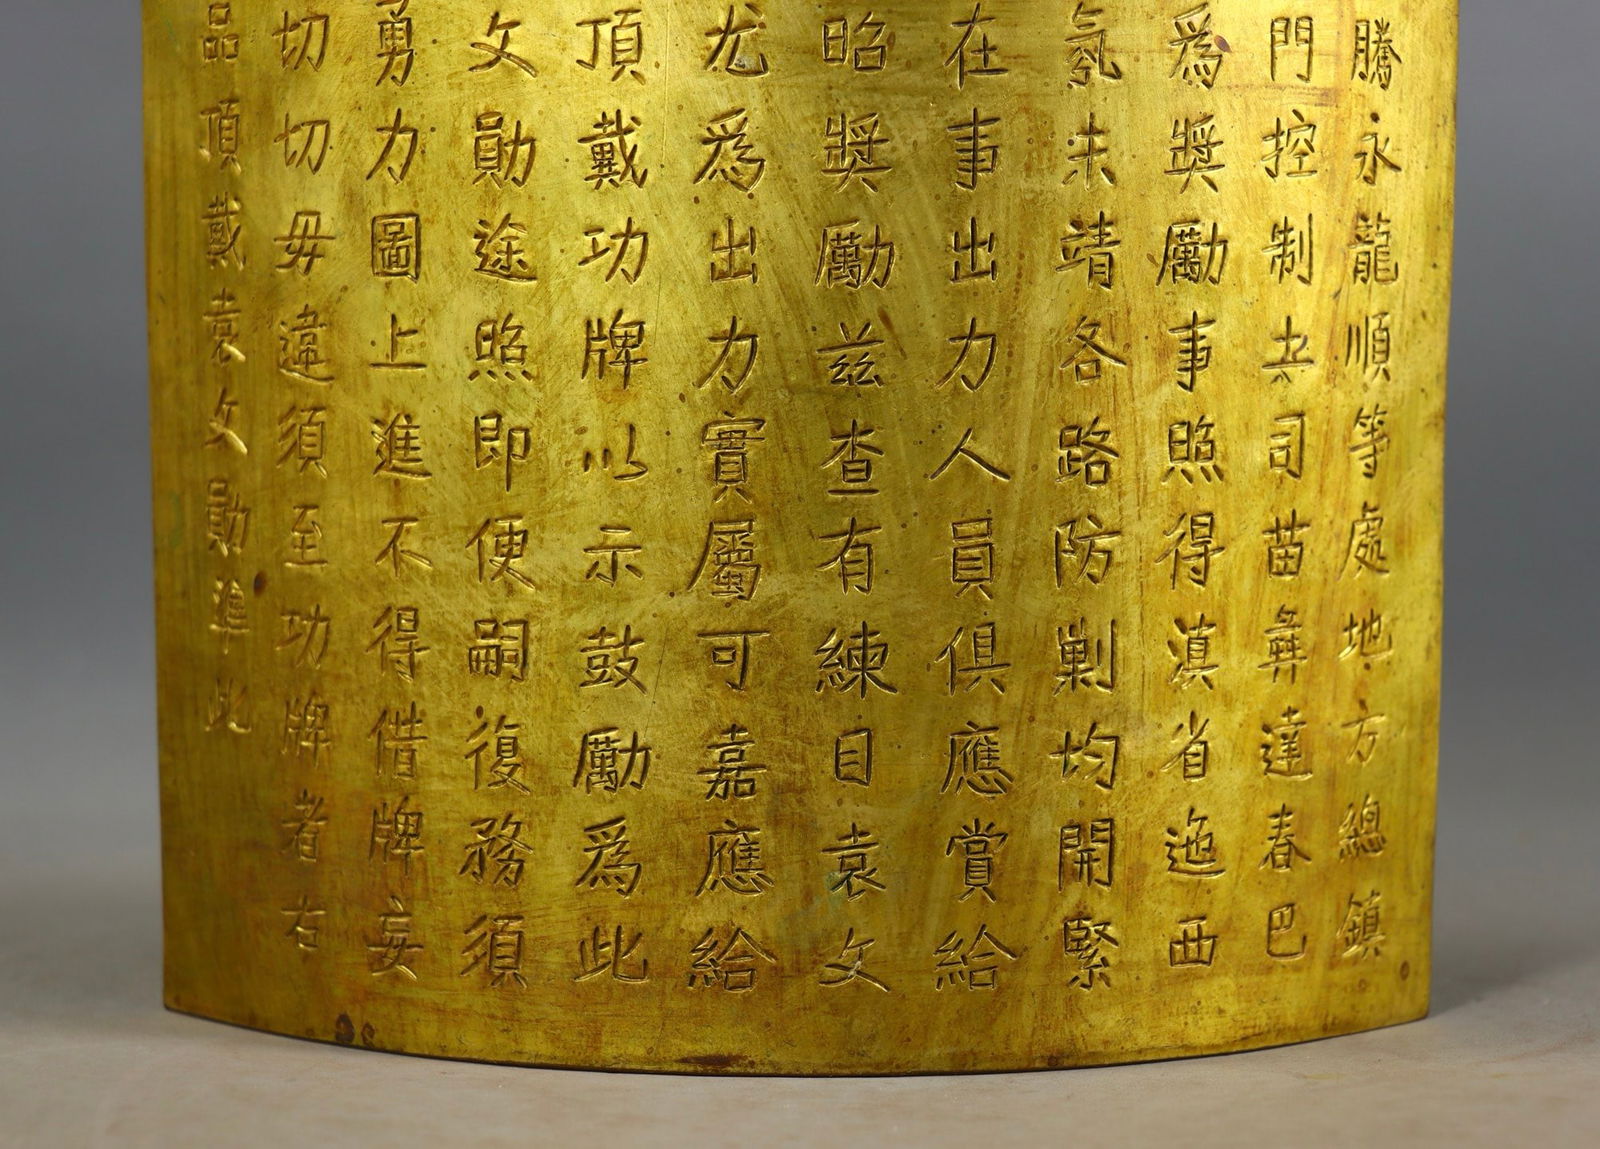 騰永龍順等處地方總鎮
門控制土司苗彝達春巴
爲獎勵事照得滇省迤西
氛未靖各路防剿均開緊
在事出力人員俱應賞給
昭獎勵茲查有練目袁文
尤爲出力實屬可嘉應給
頂戴功牌以示鼓勵爲此
文勛途照即便嗣復務須
勇力圖上進不得借牌妄
切切毋違須至功牌者右
品頂戴袁文勛準此